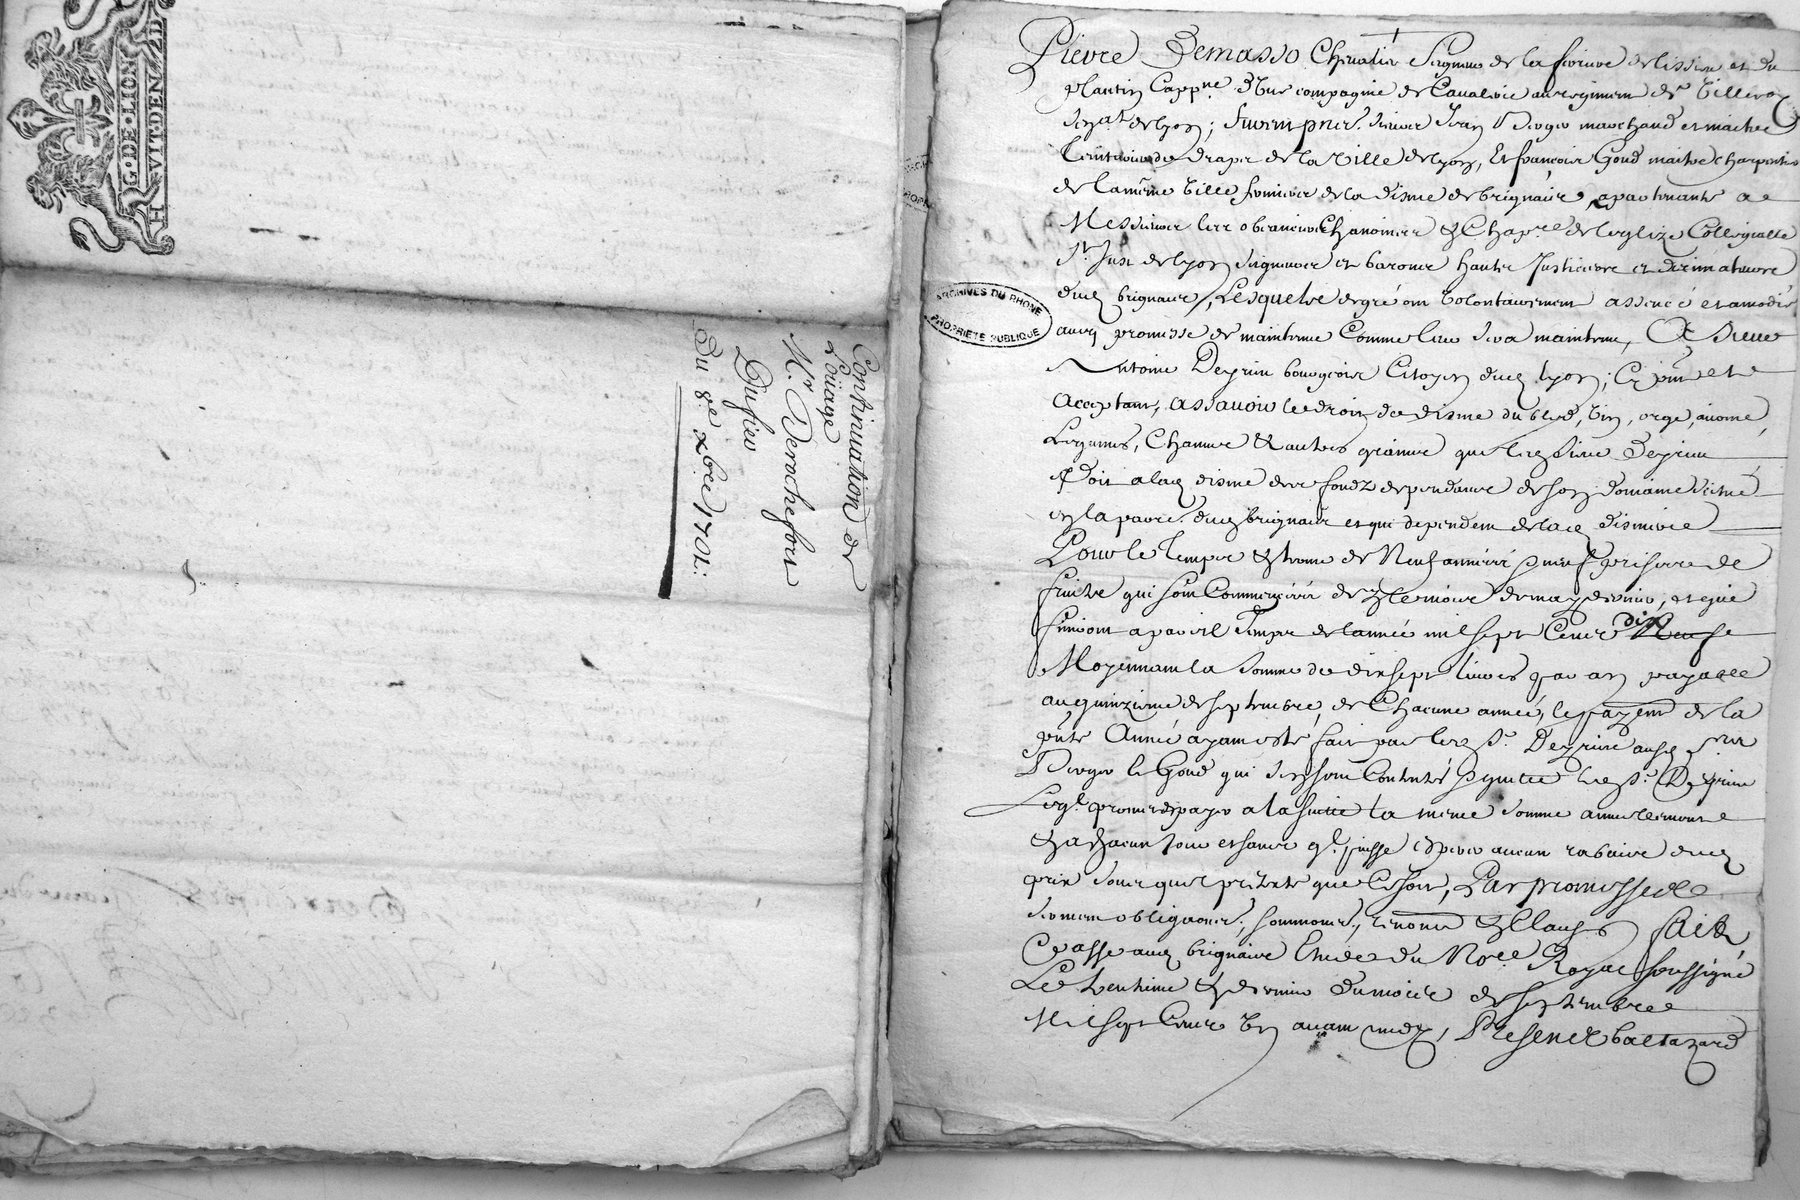 G. DE LION
H. VIT. DEN. 2 D.
Continuation de
Loüage
Mr. Derochefort
Dufieu
Du 8e. xbre 1701:
ARCHIVES DU RHONE
PROPRIETE PUBLIQUE
Pierre Demasso Chevalier Seigneur de la ferriere delissieu et du
plantin Cappne. d'Une compagnie de Cavalerie au regiment de Villeroy
Senat. de lyon; furent pnts. sieur Jean Berger marchand et maitre
de drapt de la Ville de lyon, Et françois Goud maitre charpentier
de la même Ville fermiers de la disme de brignais, apartenante a
Messieurs les Chanoines & Chapre. de leglize Collegialle
St. Just de lyon seigneurs et barons hauts Justiciers et
dud brignais, Lesquels de gré ont Volontairement assencé et amodié
avec promesse de maintenir Comme sera maintenu, A Sieur
Antoine Deyrieu bourgeois Citoyen dud lyon; Cy pnt et
acceptant, assavoir le droit de disme du bled, Vin, orge, avoine,
Legumes, Chanvre & autres grains que led Sieur Deyrieu
doit a lad disme des fondz dependants de son domaine
en la parre. dud brignais et qui dependent de lad dismerie
Pour le temps & terme de Neuf années & neuf prises de
fruits qui sont Commencées des le mois de may dernier, et qui
finiront a pareil temps de lannée mil sept Cents dix
Moyennant la somme de dix sept livres par an payable
au quinzieme de septembre, de Chacune année, le payemt de la
pnte Année ayant esté fait par led sr. Deyrieu ausd srs
Berger & Goud qui sen sont Contentés & quitte led sr. Deyrieu
Leql. promet de payer a la suitte la meme somme annuellement
& a chacun jour et sans ql. puisse esperer aucun rabais dud
prix sous quel pretexte que Ce soit, Par promesses
serment obligations, soumions., renons & Clauses fait
& passe aud brignais Etude du Nore. Royal soussigné
Le trentieme & dernier du mois de septembre
Mil sept Cents Un avant midy, Presents baltazard